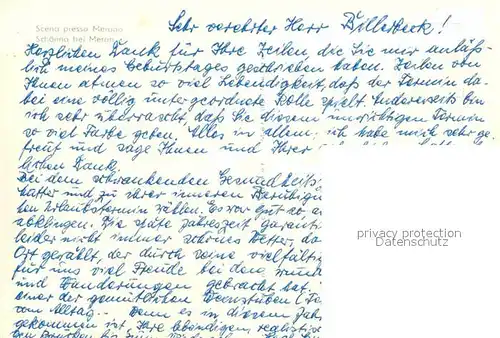 Scena presso Merano
Schönna bei Meran
Sehr verehrter Herr Billerbeck!
Herzlichen Dank für Ihre Zeilen die Sie mir anläß-
lich meines Geburtstages geschrieben haben. Zeilen von
Ihnen atmen so viel Lebendigkeit, daß der Termin da-
bei eine völlig untergeordnete Rolle spielt. Anderseits bin
ich sehr überrascht, daß Sie diesem unwichtigen Termin
so viel Farbe geben. Alles in allem: ich habe mich sehr ge-
freut und sage Ihnen und Ihrer
lichen Dank.
Bei dem schwankenden Gesundheits
mutter und zu ihrer inneren Beruhigu
den Urlaubstermin wählen. Es war gut so
abklingen. Die späte Jahreszeit garanti
leider nicht immer schönes Wetter, da
Ort gewählt, der durch seine vielfälti
für uns viel Freude bei den
und Wanderungen gebracht hat.
einer der gemütlichen Weinstuben
vom Alltag. Denn es in diesem Jahr
gekommen ist, Ihre lebendigen, realistisch
privacy protection
Datenschutz